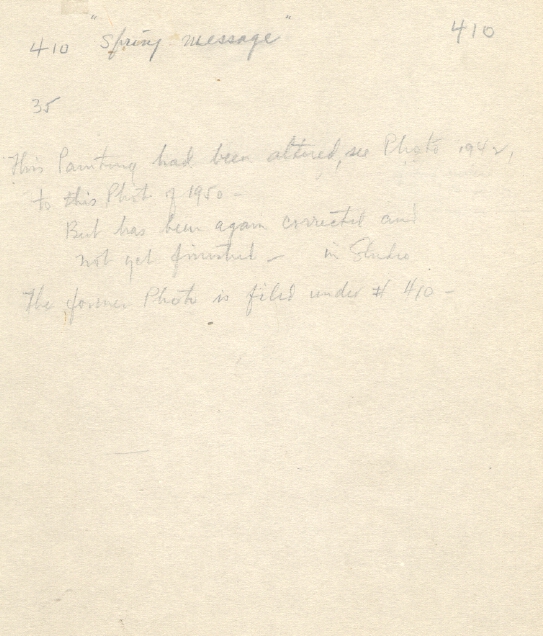 410 "Spring message" 410
35
This Painting had been altured, see Photo 1942,
to this Phot of 1950 -
But has been again corrected and
not yet finished - in Studio
The former Photo is filed under # 410 -